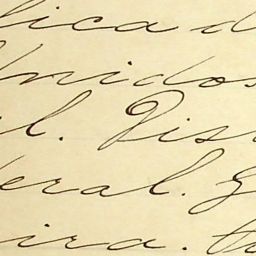 lica d
Unidos
al. Dis
deral. E
ira.